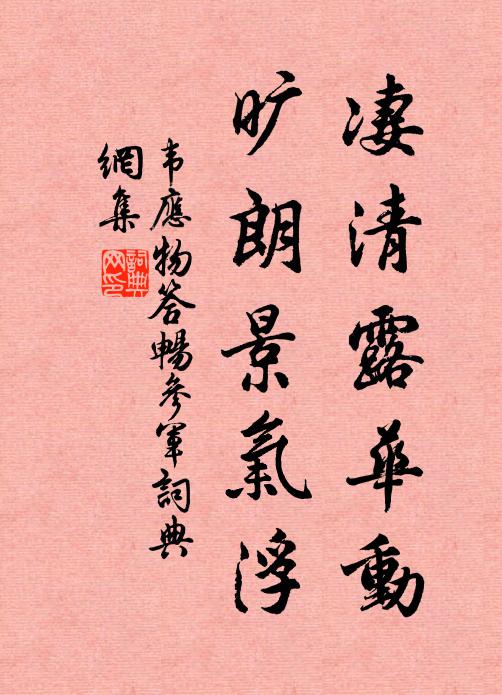 凄清露華動
旷朗景氣浮
韦應物答暢參軍詞典
網集
詞典网印